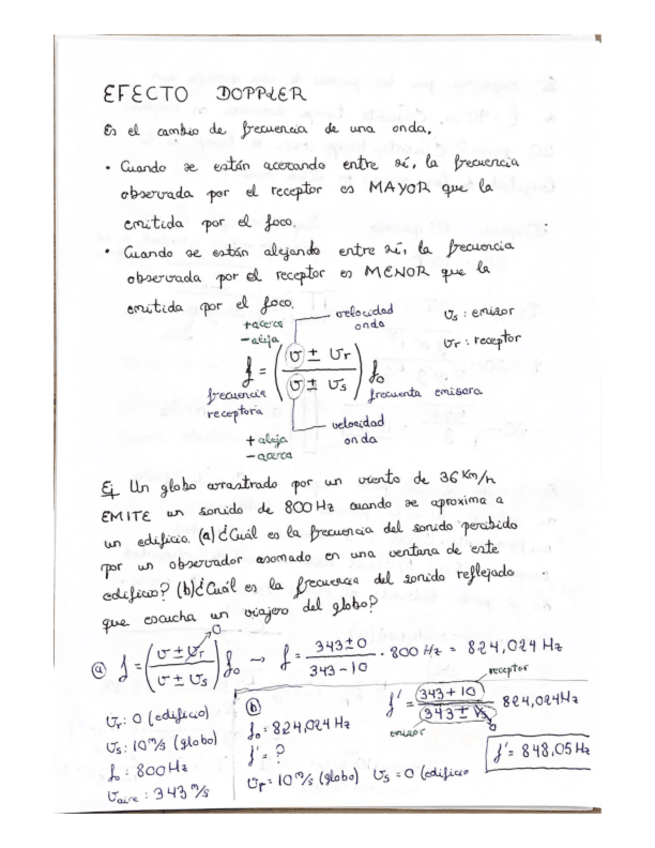 EFECTO DOPPLER
Es el cambio de frecuencia de una onda.
• Cuando se están acercando entre sí, la frecuencia
observada por el receptor es MAYOR que la
emitida por el foco.
• Cuando se están alejando entre sí, la frecuencia
observada por el receptor es MENOR que la
emitida por el foco.
+acerca
-aleja
velocidad
onda
υs : emisor
υr : receptor
f = (υ ± υr / υ ± υs) f₀
frecuencia
receptora
frecuenta emisora
velocidad
onda
+ aleja
- acerca
Ej Un globo arrastrado por un viento de 36 Km/h
EMITE un sonido de 800 Hz cuando se aproxima a
un edificio. (a) ¿Cuál es la frecuencia del sonido percibido
por un observador asomado en una ventana de este
edificio? (b) ¿Cuál es la frecuencia del sonido reflejado
que escucha un viajero del globo?
(a) f = (υ ± υr / υ ± υs) f₀ → f = 343±0 / 343-10 · 800 Hz = 824,024 Hz
0
υr : 0 (edificio)
υs : 10 m/s (globo)
f₀ : 800 Hz
υaire : 343 m/s
(b)
f₀ = 824,024 Hz
f' = ?
υr = 10 m/s (globo) υs = 0 (edificio
receptor
f' = 343+10 / 343 ± υs 824,024Hz
emisor
0
f' = 848,05 Hz